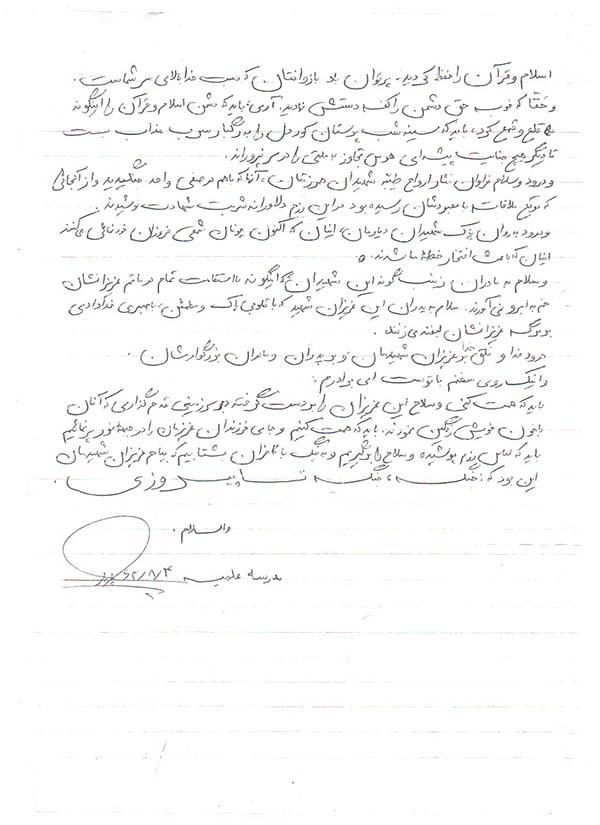 اسلام و قرآن را حفظ کردید. پرتوان باد بازوانتان که دست خدا بالای سر شماست.
و حقّا که خوب حق دشمن را کف دستش نهادید. آری، باید که دشمن اسلام و قرآن را اینگونه
قلع و قمع کرد، باید که سینه شب پرستان کوردل را به رگبار سرب مذاب بست
تا دیگر هیچ جنایت پیشه‌ای هوس تجاوز به ملتی را در سر نپروراند.
و درود و سلام فراوان نثار ارواح طیّبه شهیدان عزیزمان، آنها که باهم در صفی واحد جنگیدند و از آنجائی
که موقع ملاقات با معبودشان رسیده بود در این رزم دلاورانه شربت شهادت نوشیدند.
و درود به روان پاک شهیدان دیارمان، اینان که اکنون چونان شمعی فروزان نور فشانی می‌کنند
اینان که باعث افتخار خطهٔ ما شدند.
و سلام به مادران زینب گونه این شهیدان که اینگونه با استقامت تمام در ماتم عزیزانشان
خم به ابرو نمی‌آورند. سلام به پدران این عزیزان شهید که با قلوبی پاک و مطمئن، با صبری خدادادی
بر مرگ عزیزانشان لبخند می‌زنند.
درود خدا و خلق خدا بر عزیزان شهیدمان و بر پدران و مادران بزرگوارشان.
و اینک روی سخنم با توست ای برادرم:
باید که همت کنی و سلاح این عزیزان را بر دست گرفته و بر سرزمینی قدم گذاری که آنان
با خون خویش رنگین نمودند. باید که همت کنیم و جای فرزندان عزیزمان را در جبهه نور پر نمائیم
باید که لباس رزم پوشیده و سلاح را برگیریم و به جنگ با کافران بشتابیم که پیام عزیزان شهیدمان
این بود که: جنگ، جنگ تا پیروزی.
والسلام.
مدرسه علمیه ۶۲/۸/۴